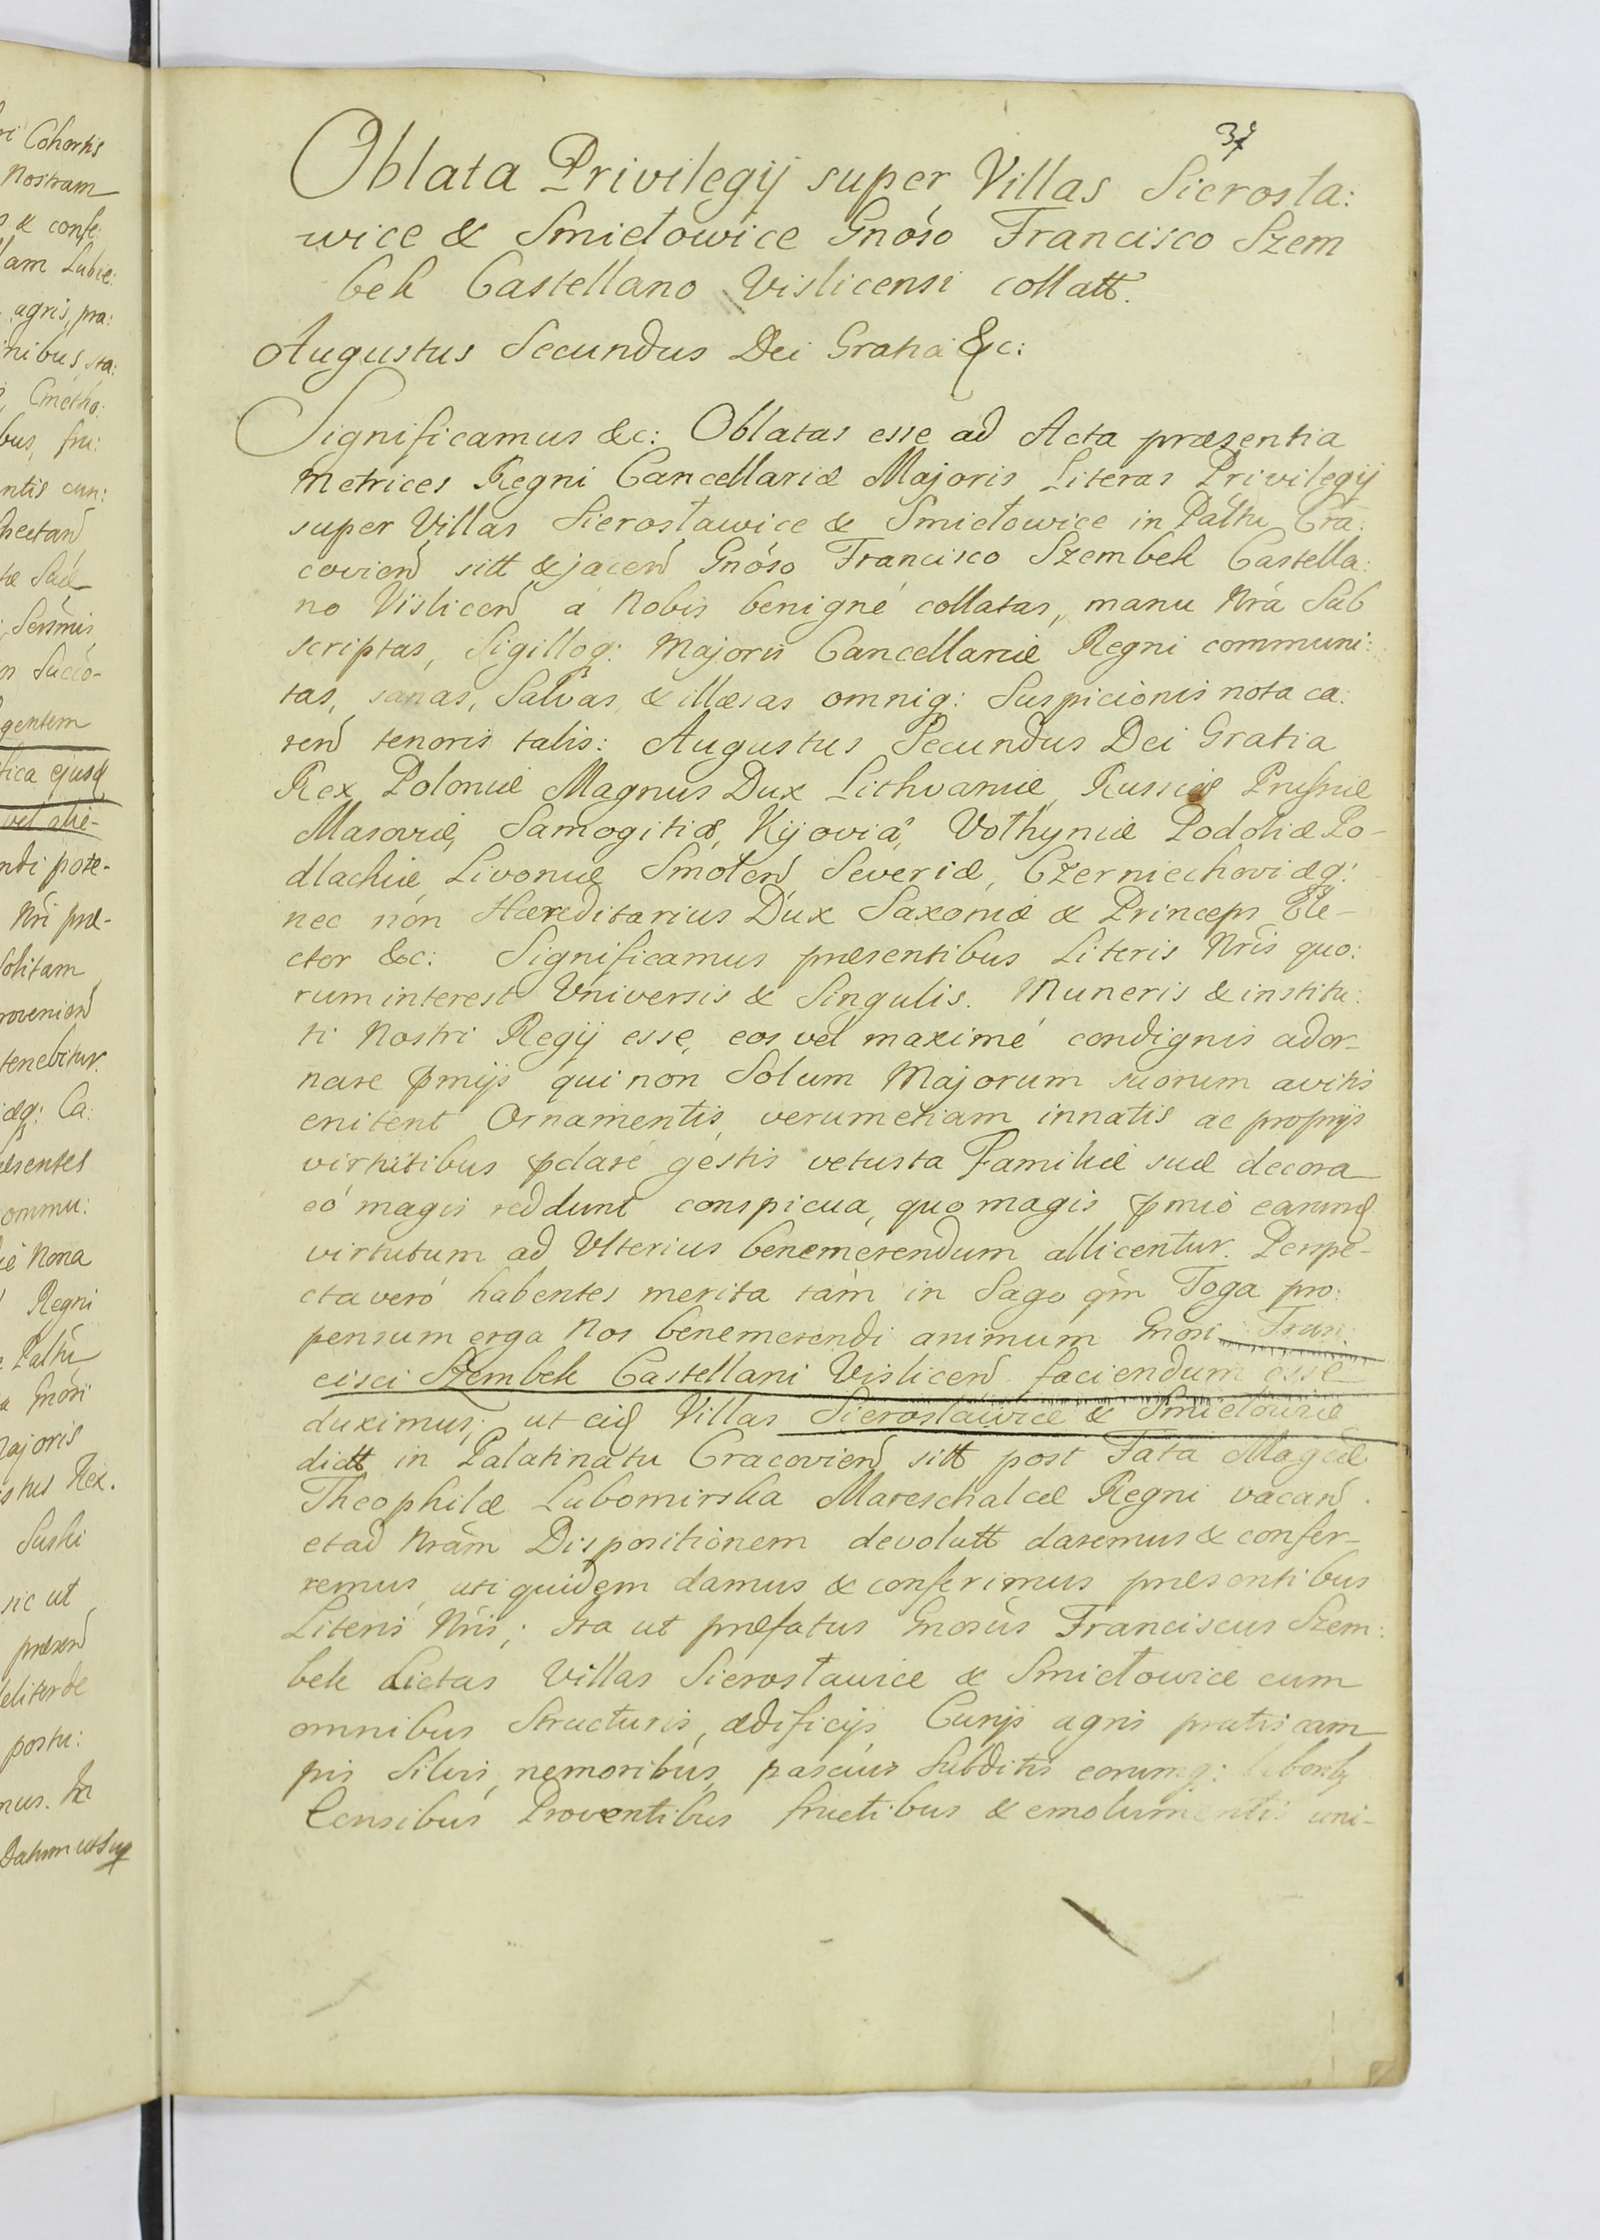 37
Oblata Privilegij super Villas Sierosła:
wice & Smiełowice Gnóso Francisco Szem
bek Castellano Vislicensi collatt.
Augustus Secundus Dei Gratia &c:
Significamus &c: Oblatas esse ad Acta præsentia
Metrices Regni Cancellariæ Majoris Literas Privilegij
super Villas Sierosławice & Smiełowice in Pălŧŭ Cra:
covień sitt & jaceń Gnóso Francisco Szembek Castella:
no Visliceń á Nobis benigné collatas, manu Nrá Sub
scriptas, Sigilloq: Majoris Cancellariæ Regni communi:
tas, sanas, Salvas, & illæsas omniq: Suspicionis nota ca:
reń tenoris talis: Augustus Secundus Dei Gratia
Rex Poloniæ Magnus Dux Lithvaniæ, Russiæ Prussiæ
Masoviæ, Samogitiæ, Kijoviæ, Vołhyniæ Podoliæ Po-
dlachiæ Livoniæ Smoleń Severiæ, Czerniechoviæq:
nec nón Hæreditarius Dux Saxoniæ & Princeps Ele-
ctor &c: Significamus præsentibus Literis Nris quo:
rum interest Universis & Singulis. Muneris & institu:
ti Nostri Regij esse, eos vel maximé condignis ador-
nare pmijs qui non Solum Majorum suorum avitis
enitent Ornamentis, verumetiam innatis ac proprijs
virtutibus pclaré gestis vetusta Familiæ suæ decora
eó magis reddunt conspicua, quo magis pmió earund
virtutum ad Ulterius benemerendum allicentur. Perspe-
cta veró habentes merita tám in Sago qm Toga pro:
pensum erga Nos benemerendi animum Gnosi Fran:
cisci Szembek Castellani Visliceń faciendum esse
duximus, ut eid Villas Sierosławice & Smiełowice
dictt in Palatinatu Cracovień sitt post Fata Magcæ
Theophilæ Lubomirska Mareschalcæ Regni vacań
et ad Nrám Dispositionem devolutt daremus & confer-
remus, uti quidem damus & conferimus præsentibus
Literis Nris; Ita ut præfatus Gnosus Franciscus Szem:
bek dictas Villas Sierosławice & Smiełowice cum
omnibus Structuris, ædificijs, Curijs agris pratis cam
pis Silvis, nemoribus, pascuis Subditis eorumq: laboriby
Censibus Proventibus fructibus & emolumentis uni-